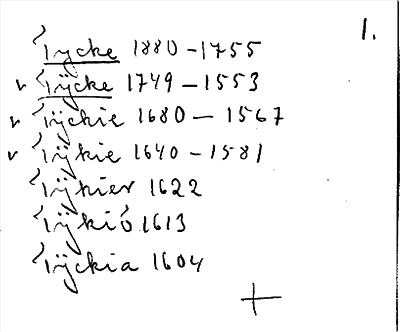 1.
Tycke 1880-1755
v Tÿcke 1749-1553
v Tÿckie 1680-1567
v Tÿkie 1640-1581
Tÿkier 1622
Tÿkió 1613
Tÿckia 1604